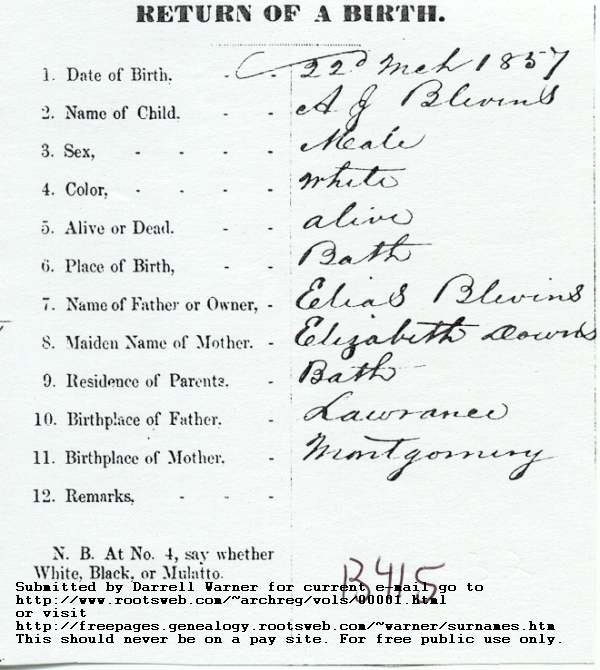 RETURN OF A BIRTH.
1. Date of Birth, - - 22d Mch 1857
2. Name of Child. - - A J Blevins
3. Sex, - - - - Male
4. Color, - - - - White
5. Alive or Dead. - - alive
6. Place of Birth, - - Bath
7. Name of Father or Owner, - Elias Blevins
8. Maiden Name of Mother. - Elizabeth Downs
9. Residence of Parents. - Bath
10. Birthplace of Father. - Lawrance
11. Birthplace of Mother. - Montgomery
12. Remarks, - - -
N. B. At No. 4, say whether
White, Black, or Mulatto.
B415
Submitted by Darrell Warner for current e-mail go to
http://www.rootsweb.com/~archreg/vols/00001.html
or visit
http://freepages.genealogy.rootsweb.com/~warner/surnames.htm
This should never be on a pay site. For free public use only.